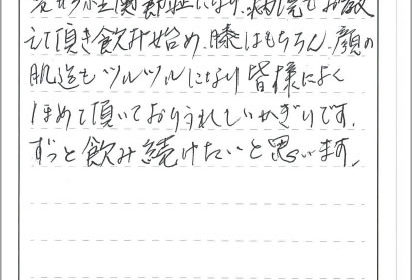 変形性関節症になり、病院でお教
えて頂き飲み始め、膝はもちろん、顔の
肌迄もツルツルになり皆様によく
ほめて頂いておりうれしいかぎりです。
ずっと飲み続けたいと思います。